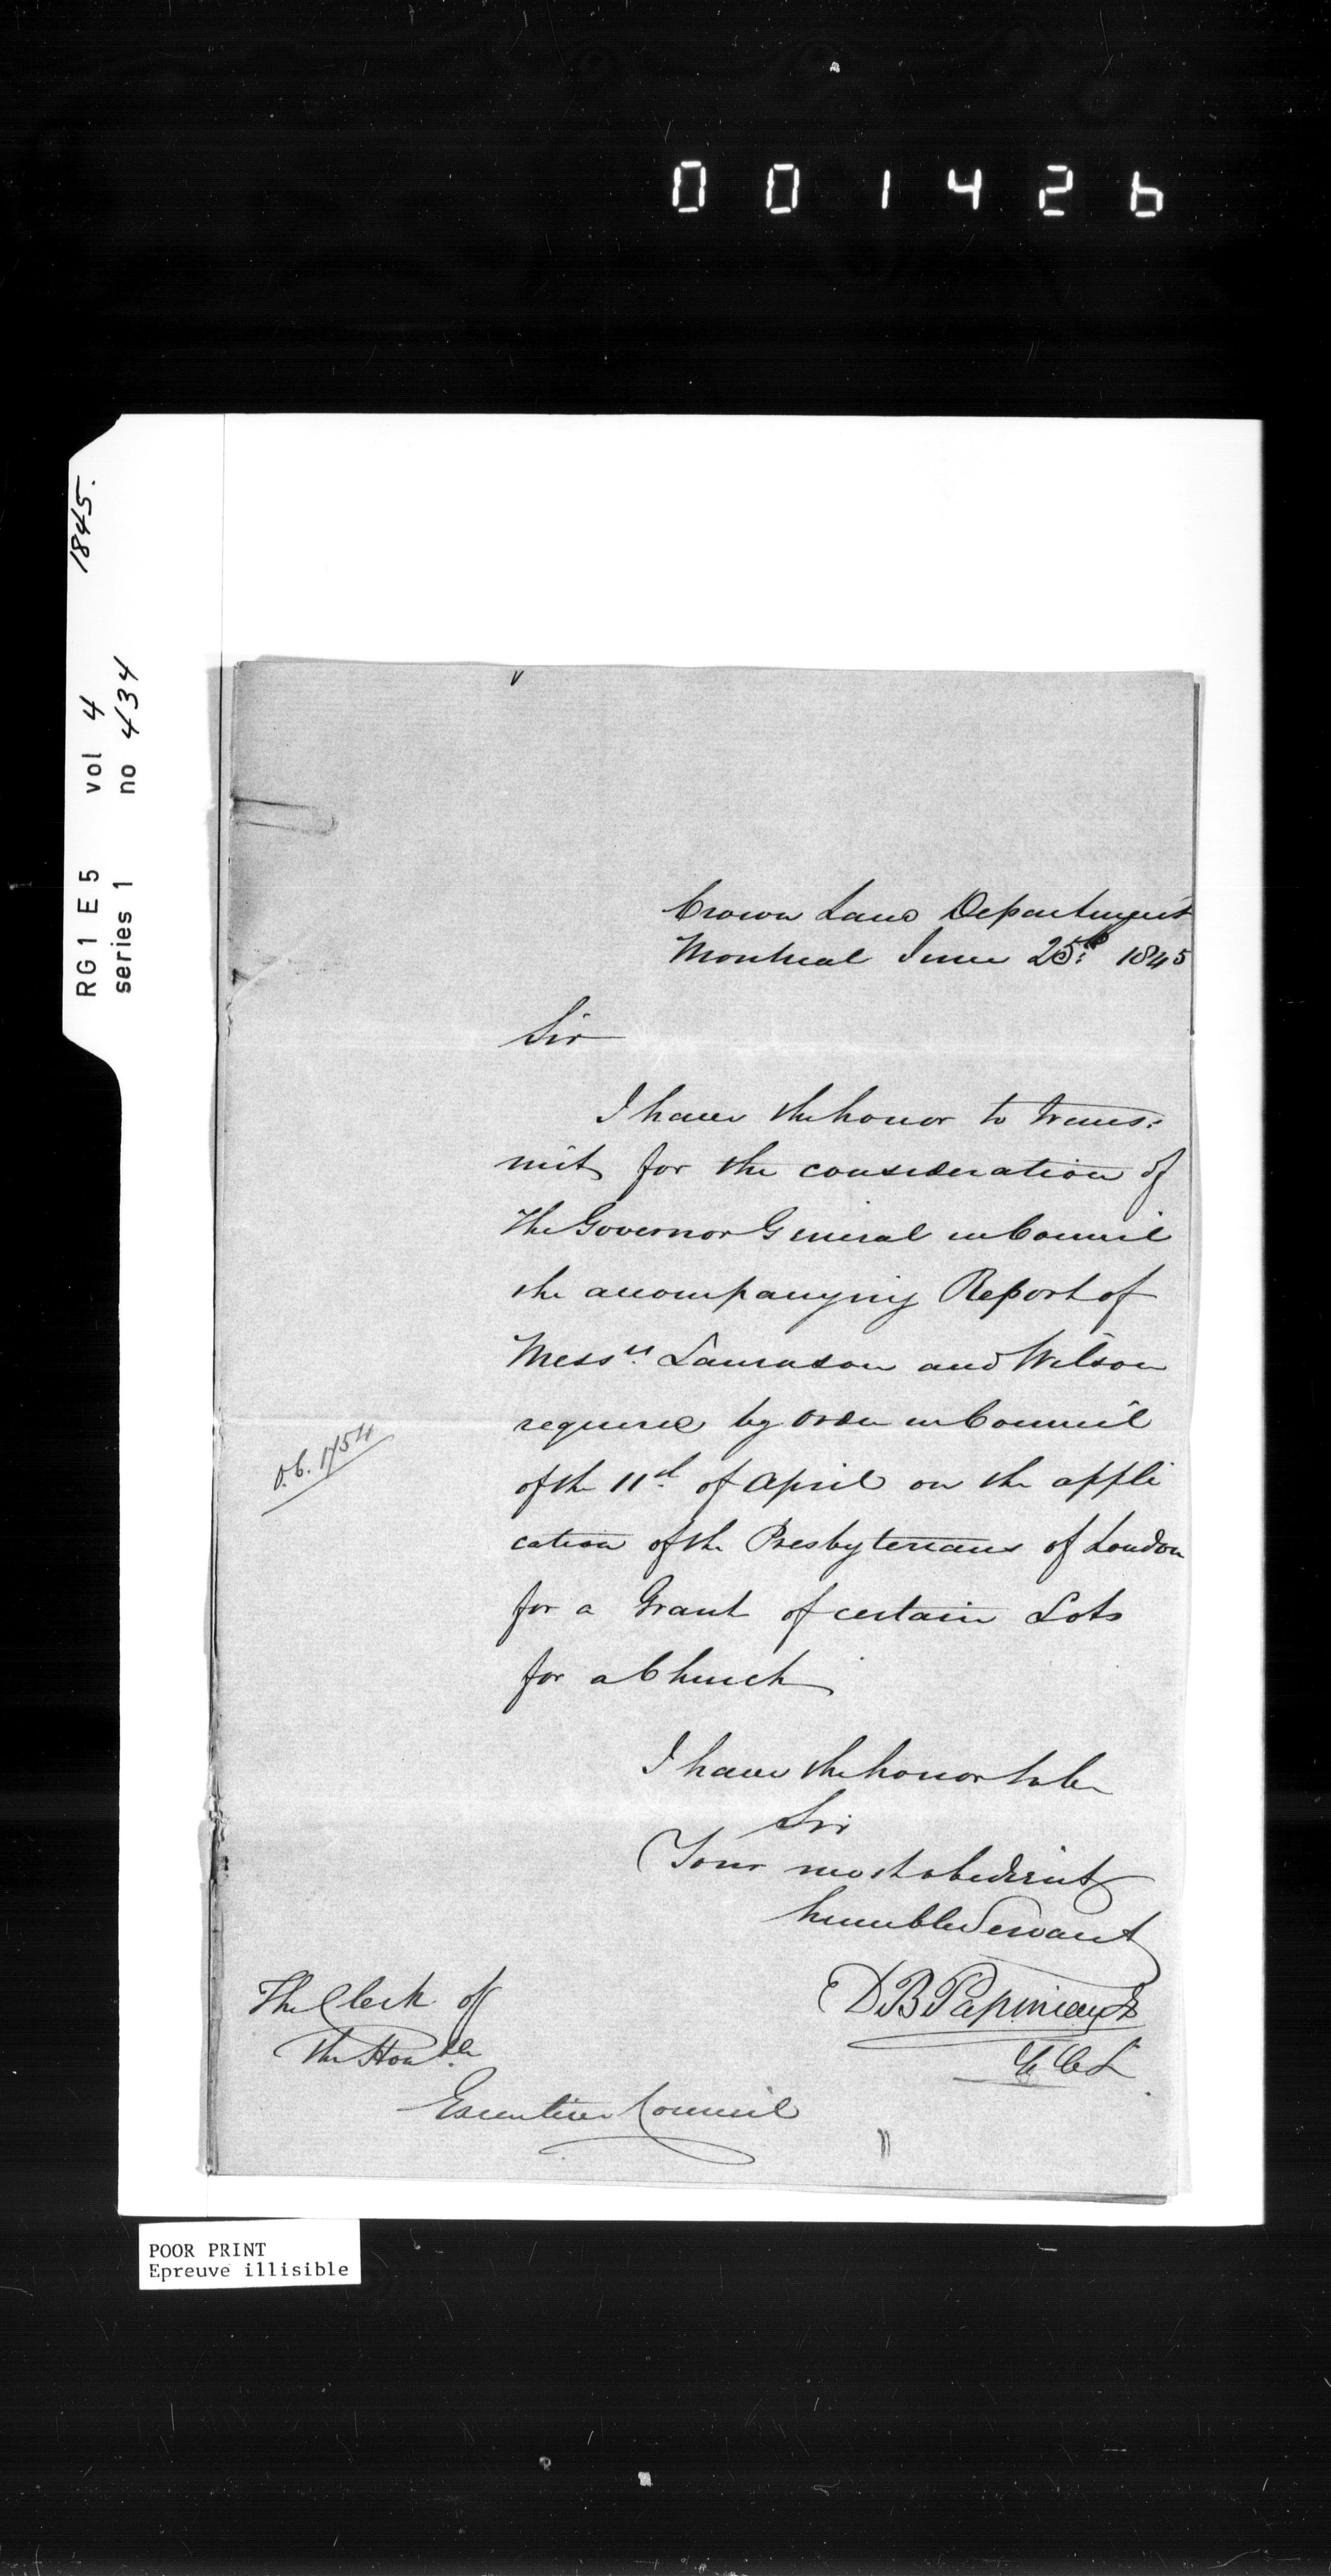 001426
1845.
RG1 E5 vol 4
series 1 no 434
Crown Land Department
Montreal June 25th 1845
Sir
I have the honor to trans:
mit for the consideration of
the Governor General in Council
the accompanying Report of
Messrs. Lawrason and Wilson
required by Order in Council
of the 11th of April on the appli
cation of the Presbyterians of London
for a Grant of certain Lots
for a Church
O.C. 1754
I have the honor to be
Sir
Your most obedient
humble Servant
D B Papineau
C C L
The Clerk of
the Honble
Executive Council
POOR PRINT
Epreuve illisible